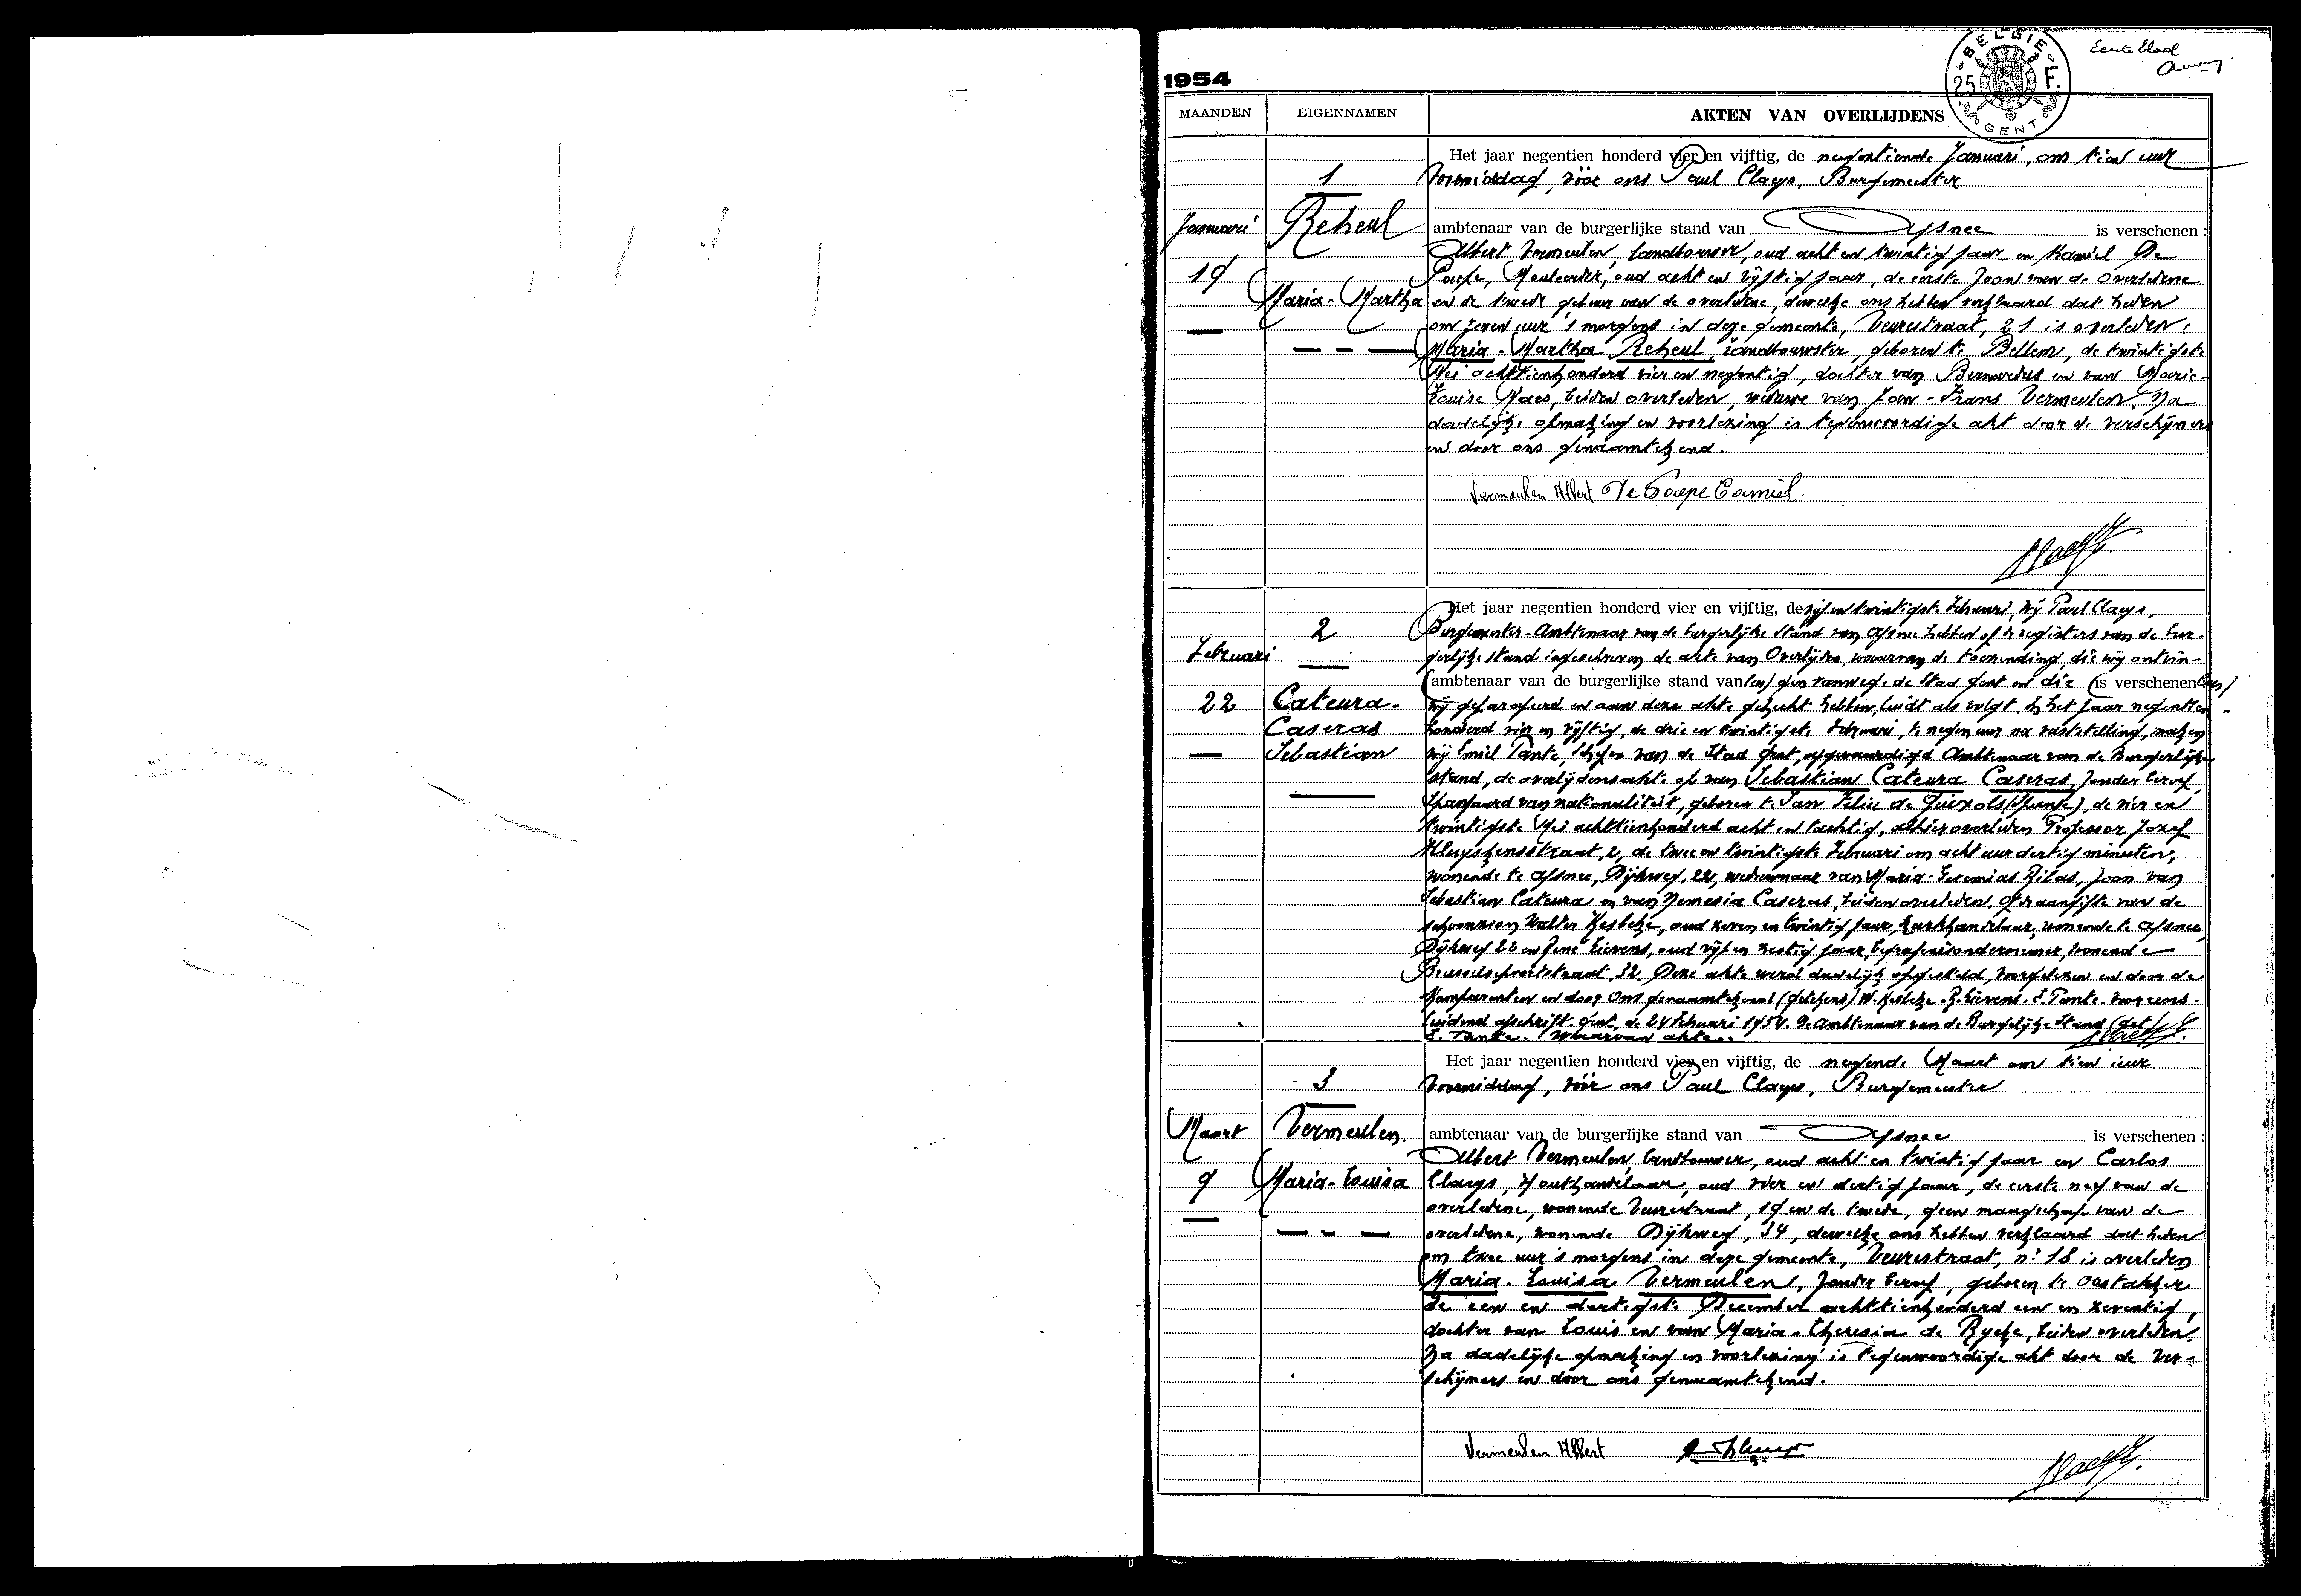 Eerste blad
BELGIE
25 F.
GENT
1954
MAANDEN
EIGENNAMEN
AKTEN VAN OVERLIJDENS
Januari
19
1
Reheul
Maria-Martha
Het jaar negentien honderd vier en vijftig, de negentiende Januari, om tien uur
voormiddag, vóór ons Paul Claeys, Burgemeester
ambtenaar van de burgerlijke stand van Afsnee is verschenen :
Albert Vermeulen, landbouwer, oud acht en twintig jaar en Kamiel De
Paepe, Meuleerder, oud acht en vijftig jaar, de eerste zoon van de overledene
en de tweede gebuur van de overledene, dewelke ons hebben verklaard dat heden
om zeven uur 's morgens in deze gemeente, Veurestraat, 21 is overleden:
Maria-Martha Reheul, landbouwster, geboren te Bellem, de twintigste
Mei achttienhonderd vier en negentig, dochter van Bernardus en van Marie-
Louise Maes, beiden overleden, weduwe van Jan-Frans Vermeulen. Na
dadelijke opmaking en voorlezing is tegenwoordige akt door de verschijners
en door ons genaamtekend.
Vermeulen Albert De Paepe Camiel.
Februari
22
2
Cateura-
Caseras
Sebastian
Het jaar negentien honderd vier en vijftig, de vijf en twintigste Februari, wij Paul Claeys,
Burgemeester-Ambtenaar van de burgerlijke stand van Afsnee hebben op de registers van de bur-
gerlijke stand ingeschreven de akte van Overlijden, waarvan de toezending, die wij ontvin-
ambtenaar van de burgerlijke stand van gen vanwege de Stad Gent en die is verschenen
wij geparafeerd en aan deze akte gehecht hebben, luidt als volgt. In het jaar negentien-
honderd vier en vijftig, de drie en twintigste Februari, te negen uur na vaststelling, maken
wij Emiel Tante, schepen van de Stad Gent, afgevaardigd Ambtenaar van de Burgerlijke
stand, de overlijdensakte op van Sebastian Cateura Caseras, zonder beroep,
Spanjaard van nationaliteit, geboren te San Feliu de Guixols (Spanje), de vier en
twintigste Mei achttienhonderd acht en tachtig, alhier overleden Professor Jozef
Kluyskensstraat, 2, de twee en twintigste Februari om acht uur dertig minuten,
wonende te Afsnee, Dijkweg, 22, weduwnaar van Maria-Geremias Ribas, zoon van
Sebastian Cateura en van Nemesia Caseras, beiden overleden. Op aangifte van de
schoonzoon Walter Kesteke, oud zeven en twintig jaar, kurkhandelaar, wonende te Afsnee,
Dijkweg 22 en René Lievens, oud vijf en zestig jaar, begrafenisondernemer, wonende
Brusselsepoortstraat, 32. Deze akte werd dadelijk opgesteld, voorgelezen en door de
Komparanten en door Ons genaamtekend (getekend) W. Kesteke. R. Lievens. E. Tante. Voor eens-
luidend afschrift. Gent, de 24 Februari 1954. De Ambtenaar van de Burgerlijke Stand (get.)
E. Tante. Waarvan akte.
Maart
9
3
Vermeulen.
Maria-Louisa
Het jaar negentien honderd vier en vijftig, de negende Maart om tien uur
voormiddag, vóór ons Paul Claeys, Burgemeester
ambtenaar van de burgerlijke stand van Afsnee is verschenen :
Albert Vermeulen, landbouwer, oud acht en twintig jaar en Carlos
Claeys, Houthandelaar, oud vier en dertig jaar, de eerste neef van de
overledene, wonende Veurestraat, 19 en de tweede, geen maagschap van de
overledene, wonende Dijkweg, 34, dewelke ons hebben verklaard dat heden
om twee uur 's morgens in deze gemeente, Veurestraat, n° 18 is overleden
Maria-Louisa Vermeulen, zonder beroep, geboren te Oostakker
de een en dertigste December achttienhonderd een en zeventig,
dochter van Louis en van Maria-Theresia de Rycke, beiden overleden.
Na dadelijke opmaking en voorlezing is tegenwoordige akt door de ver-
schijners en door ons genaamtekend.
Vermeulen Albert